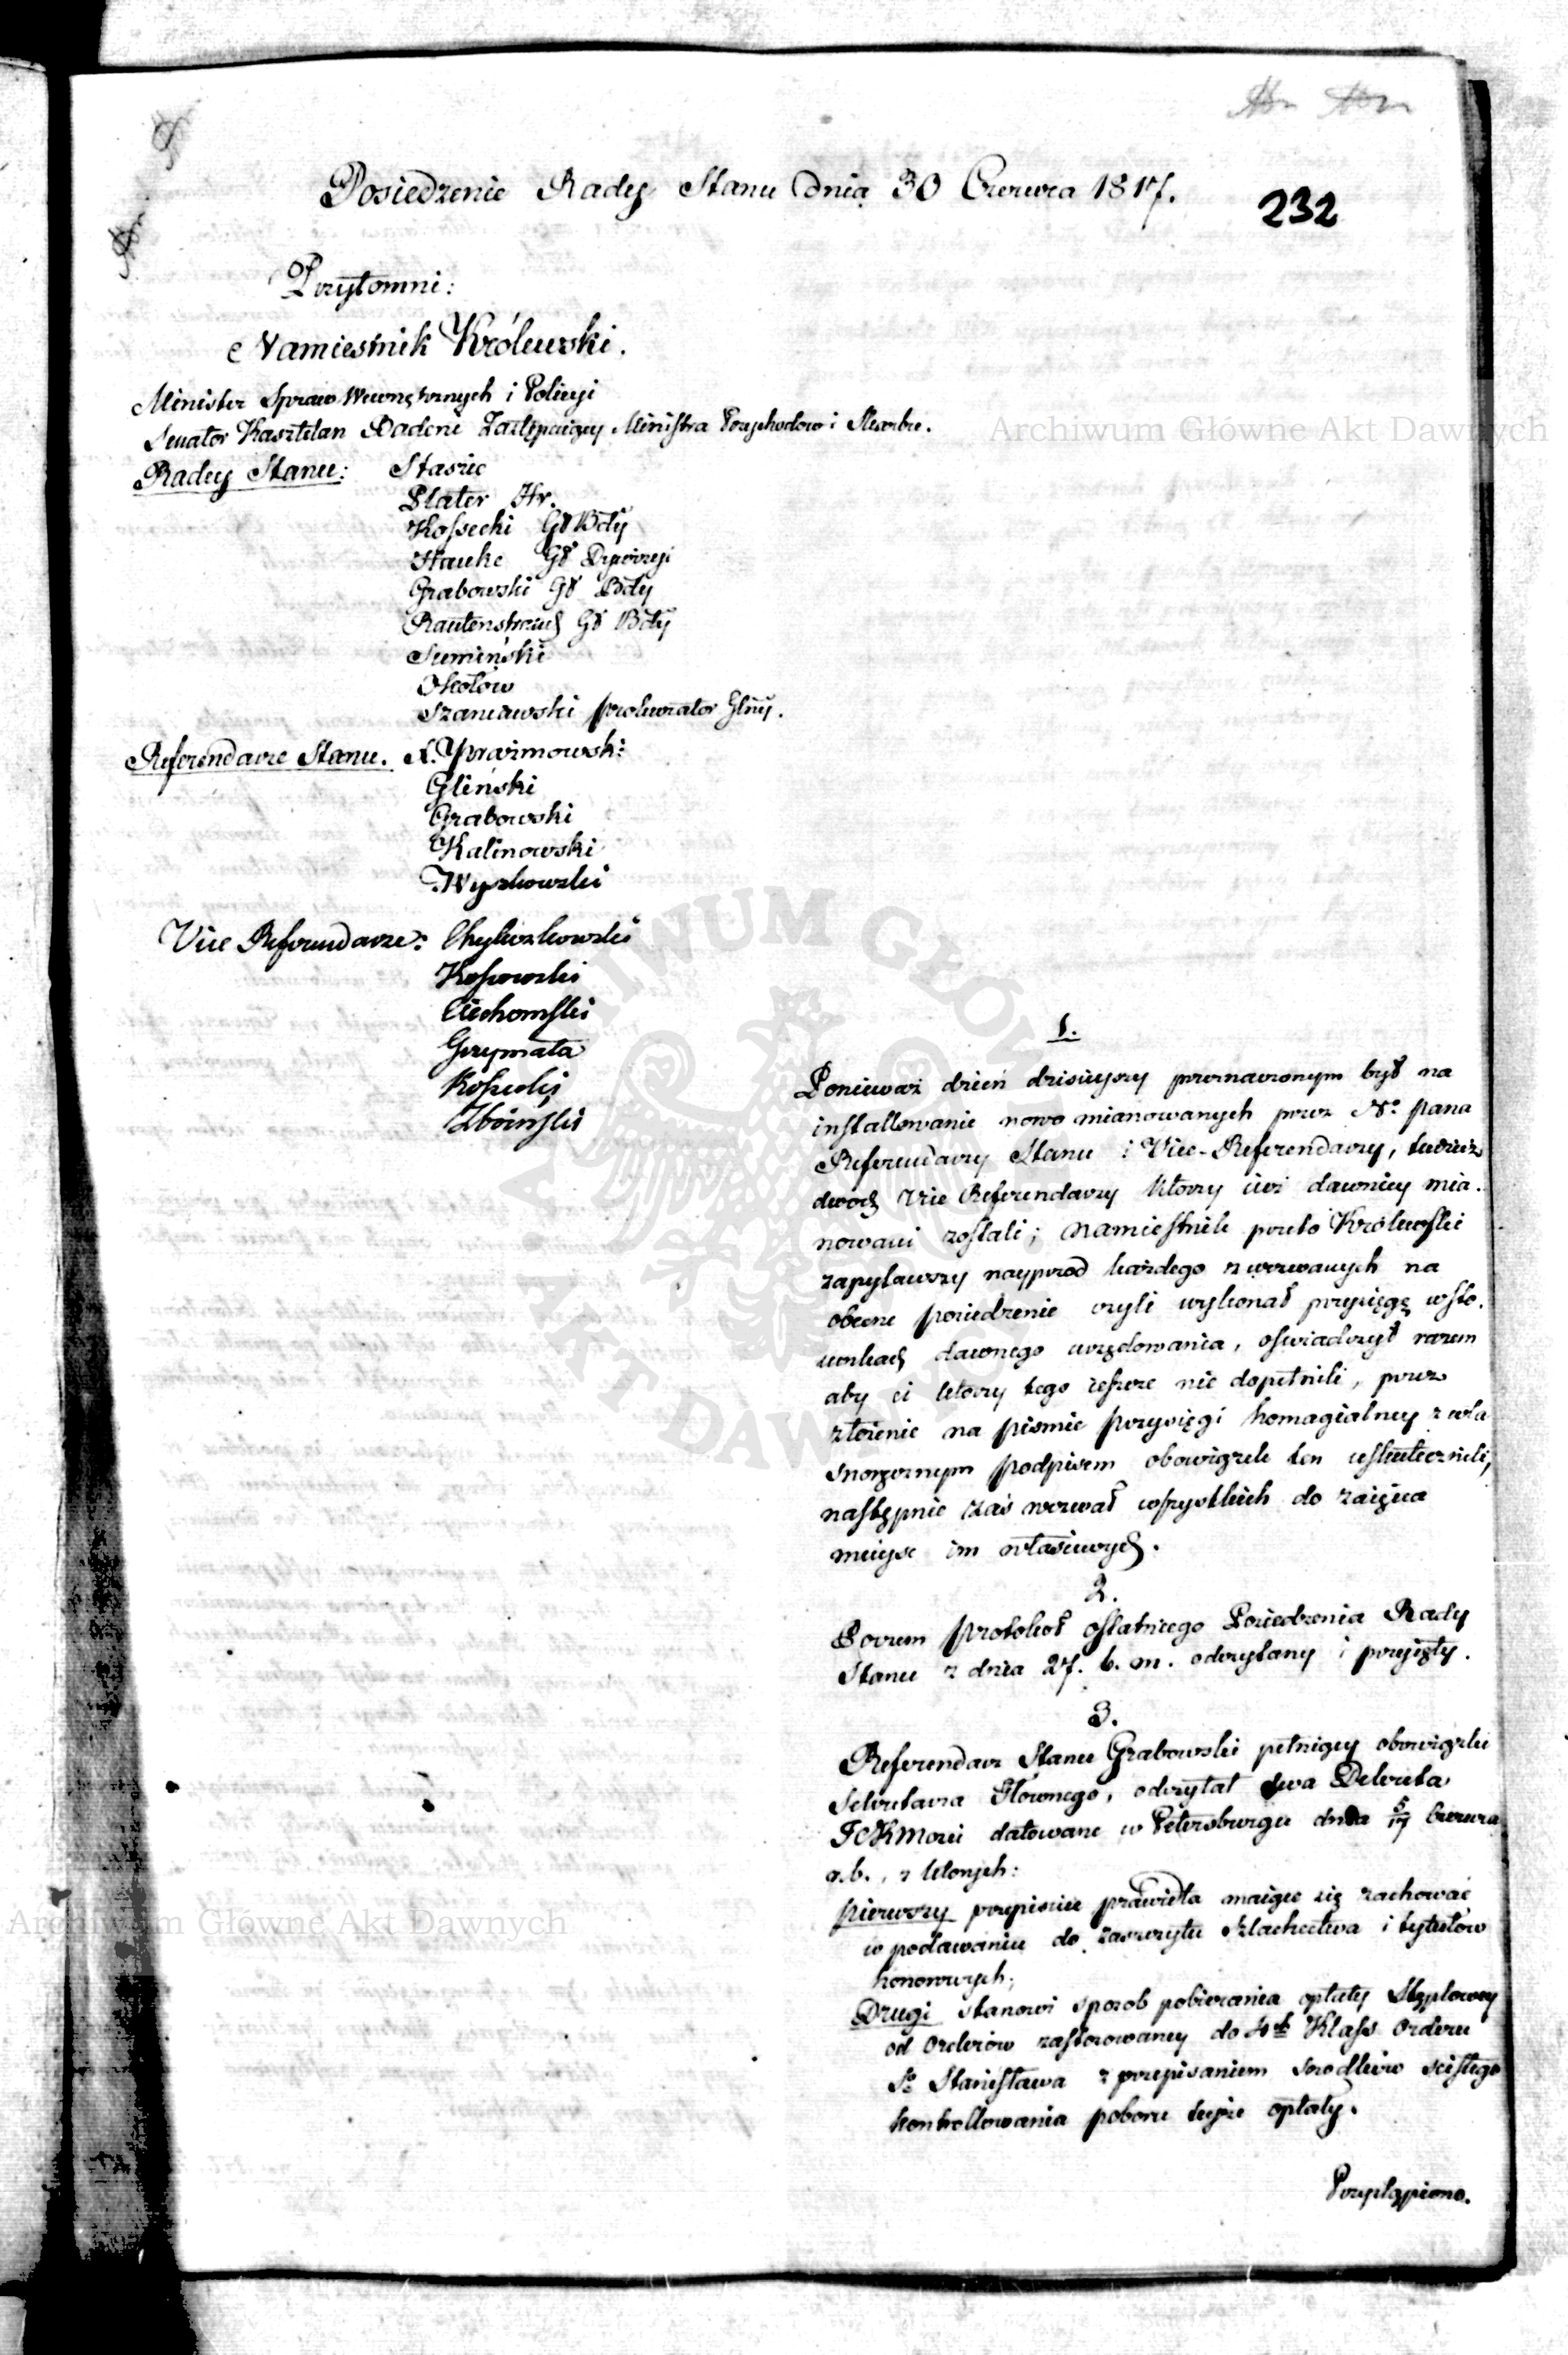 Posiedzenie Rady Stanu dnia 30 Czerwca 1817.
232
Przytomni:
Namiestnik Królewski.
Minister Spraw Wewnętrznych i Policyi
Senator Kasztelan Badeni Zastępuiący Ministra Przychodow i Skarbu.
Radcy Stanu: Stasic
Plater Hr.
Kossecki Gł Bdy
Hauke Gł Dywizyi
Grabowski Gł Bdy
Rautenstrauch Gł Bdy
Sumiński
Okołow
Szaniawski prokurator Glny.
Referendarze Stanu. X. Prażmowski
Gliński
Grabowski
Kalinowski
Wyszkowski
Vice Referendarze: Chyliczkowski
Kossowski
Ciechomski
Grzymała
Kossecki
Zboiński
1.
Ponieważ dzień dzisieyszy przeznaczonym był na
installowanie nowo mianowanych przez N. pana
Referendarzy Stanu i Vice-Referendarzy, tudzież
dwóch Vice Referendarzy którzy iuż dawniey mia.
nowani zostali; Namiestnik przeto Królewski
zapytawszy nayprzod każdego z wezwanych na
obecne posiedzenie czyli wykonał przysięgę w sto.
sunkach dawnego urzędowania, oświadczył razem
aby ci którzy tego ieszcze nie dopełnili, przez
złożenie na pismie przysięgi homagialney z wła
snoręcznym podpisem obowiązek ten uskutecznili,
następnie zaś wezwał wszystkich do zaięcia
mieysc im właściwych.
2.
Poczem protokoł ostatniego Posiedzenia Rady
Stanu z dnia 27. b. m. odczytany i przyięty.
3.
Referendarz Stanu Grabowski pełniący obowiązki
Sekretarza Głównego, odczytał dwa Dekreta
JCKMosci datowane w Petersburgu dnia 5/17 Czerwca
r.b., z których:
pierwszy przepisuie prawidła maiące się zachować
w podawaniu do zaszczytu Szlachectwa i tytułów
honorowych;
Drugi stanowi sposob pobierania opłaty Stęplowey
od Orderów zastosowaney do 4ch Klass Orderu
So Stanisława z przepisaniem srodków scisłego
kontrollowania poboru teyże opłaty.
Przystąpiono.
Archiwum Główne Akt Dawnych
Archiwum Główne Akt Dawnych
ARCHIWUM GŁÓWNE AKT DAWNYCH